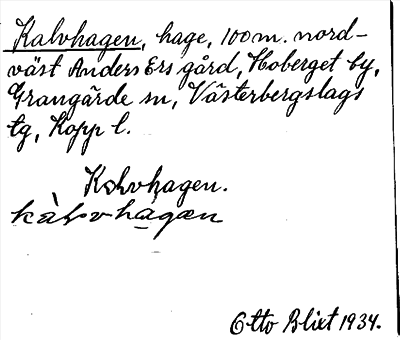 Kalvhagen, hage, 100 m. nord-
väst Anders Ers gård, Hoberget by,
Grangärde sn, Västerbergslags
tg, Kopp l.
Kalvhagen.
Otto Blixt 1934.